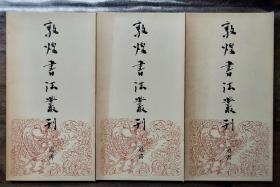 敦煌書法叢刊
敦煌書法叢刊
敦煌書法叢刊